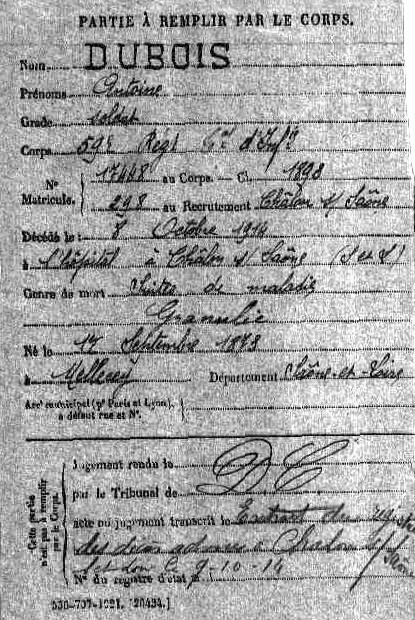 PARTIE À REMPLIR PAR LE CORPS.
Nom DUBOIS
Prénoms Antoine
Grade soldat
Corps 59e Régt d'Infie
No Matricule. 17448 au Corps. — Cl. 1898
298 au Recrutement Châlon s/ Saône
Décédé le 8 Octobre 1914
à l'hôpital à Châlon s/ Saône (S et L)
Genre de mort Suites de maladie
Granulie
Né le 17 Septembre 1878
à Mellecey Département Saône-et-Loire
Arrt municipal (pr Paris et Lyon),
à défaut rue et No.
Cette partie n'est pas à remplir par le Corps.
Jugement rendu le
par le Tribunal de
acte ou jugement transcrit le Extrait du
des
9-10-14
No du registre d'état
530-707-1921. [26434.]